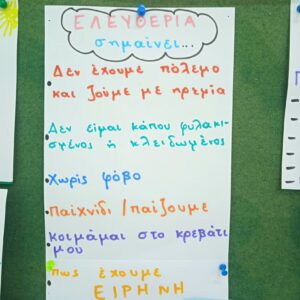 ΕΛΕΥΘΕΡΙΑ
σημαίνει...
Δεν έχουμε πόλεμο
και ζούμε με ηρεμία
Δεν είμαι κάπου φυλακι-
σμένος ή κλειδωμένος
Χωρίς φόβο
Παιχνίδι / παίζουμε
Κοιμάμαι στο κρεβάτι
μου
πως έχουμε
ΕΙΡΗΝΗ